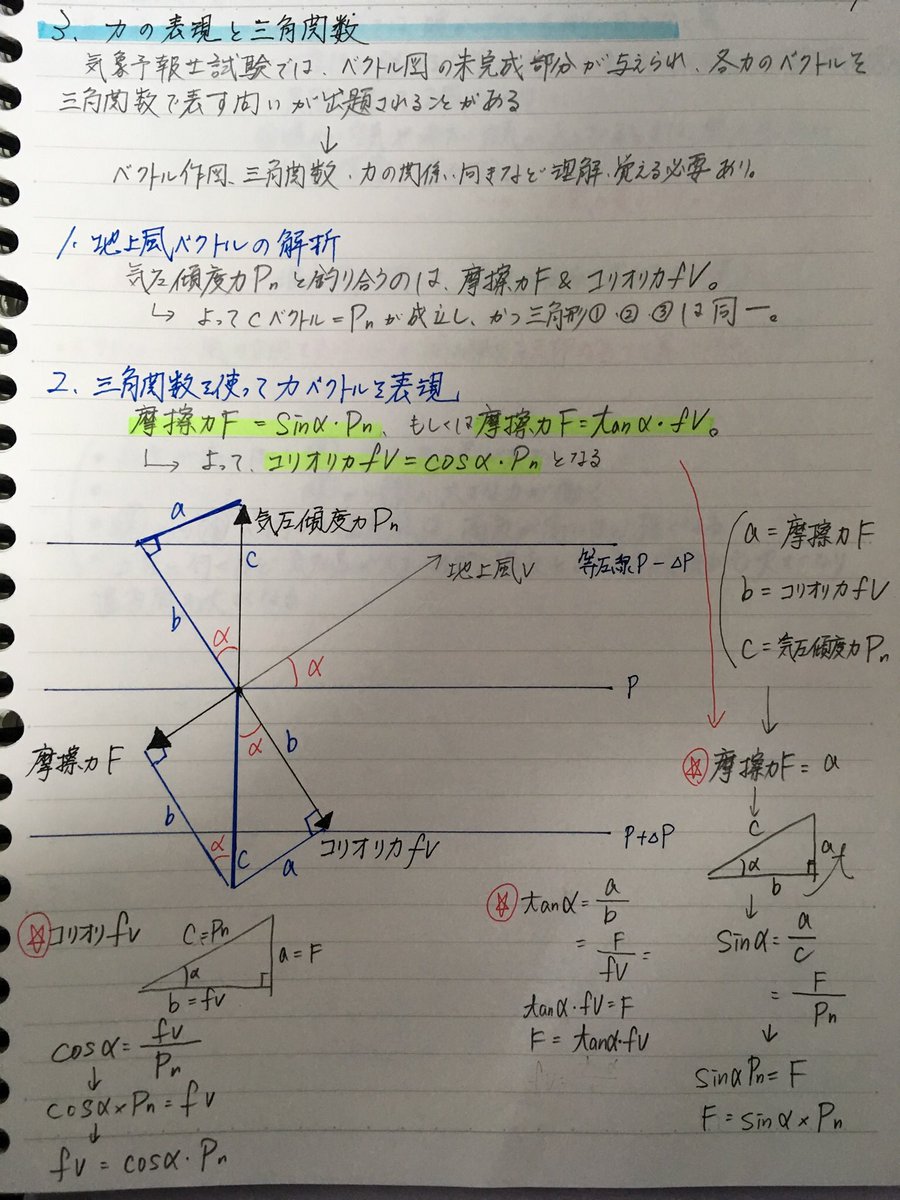 3、力の表現と三角関数
気象予報士試験では、ベクトル図の未完成部分が与えられ、各力のベクトルを
三角関数で表す問いが出題されることがある
↓
ベクトル作図、三角関数・力の関係・向きなど理解・覚える必要あり。
1. 地上風ベクトルの解析
気圧傾度力Pnと釣り合うのは、摩擦力F & コリオリ力fV。
↳ よってcベクトル=Pnが成立し、かつ三角形①・②・③は同一。
2、三角関数を使って力ベクトルを表現
摩擦力F = sinα・Pn、もしくは摩擦力F=tanα・fV。
↳ よって、コリオリ力fV=cosα・Pnとなる
a
気圧傾度力Pn
c
地上風V
等圧線P-ΔP
b
α
α
P
α
b
摩擦力F
b
α
c
a
コリオリ力fV
P+ΔP
a=摩擦力F
b=コリオリ力fV
c=気圧傾度力Pn
↓
摩擦力F=a
↓
c
α
a
b
↓
sinα=a/c
=F/Pn
↓
sinαPn=F
F=sinα×Pn
tanα=a/b
=F/fV=
tanα・fV=F
F=tanα・fV
コリオリfV
c=Pn
α
a=F
b=fV
cosα=fV/Pn
↓
cosα×Pn=fV
↓
fV=cosα・Pn